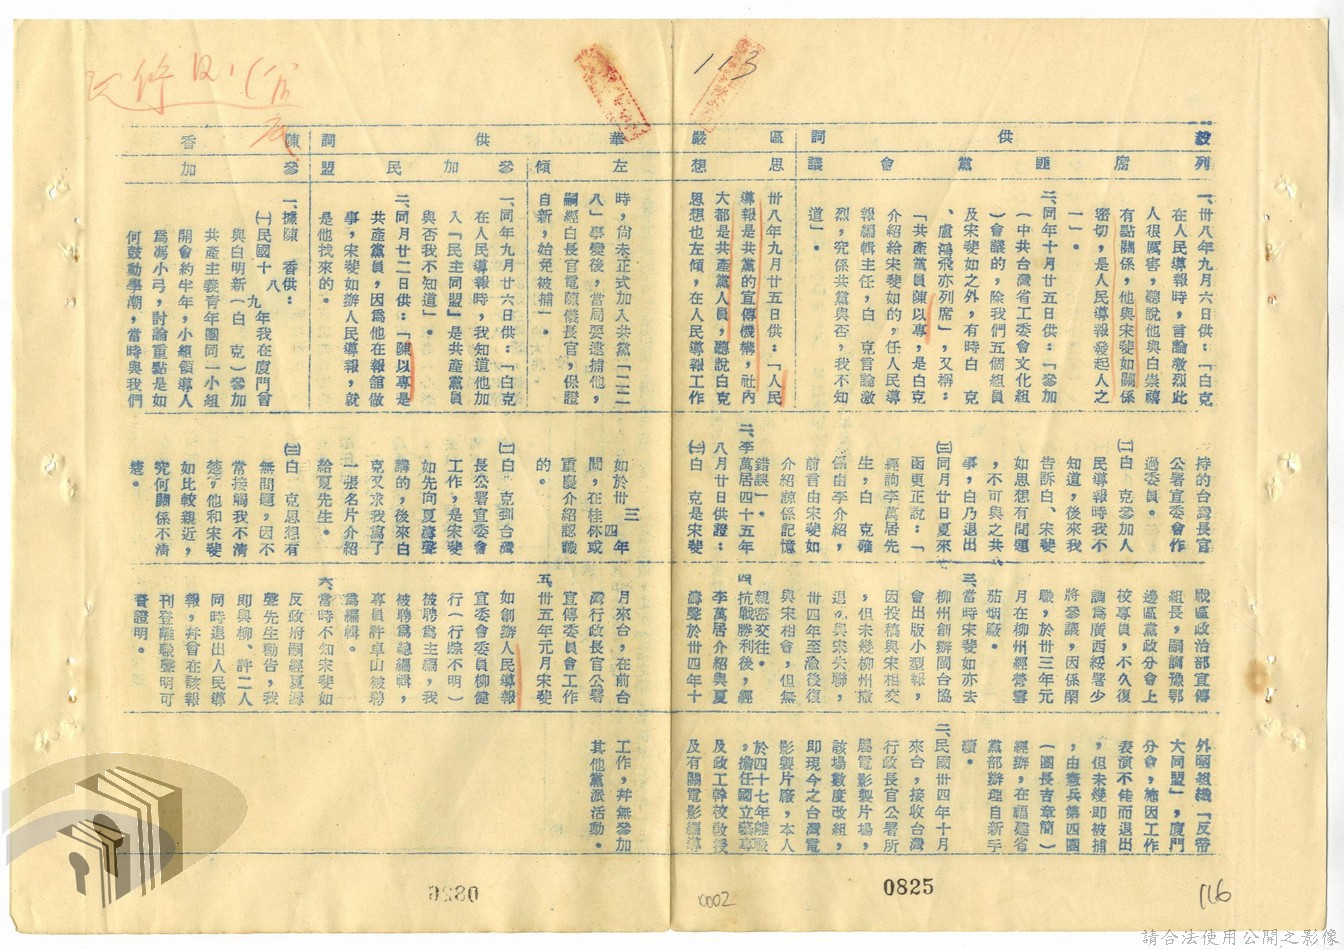 113
毅 供 詞
區 嚴 華 供 詞
陳 香
列 席 匪 黨 會 議
思 想 左 傾
參 加 民 盟
參 加
一、卅八年九月六日供：「白克
在人民導報時，言論激烈此
人很厲害，聽說他與白崇禧
有點關係，他與宋斐如關係
密切，是人民導報發起人之
一」。
二、同年十月廿五日供：「參加
（中共台灣省工委會文化組
）會議的，除我們五個組員
及宋斐如之外，有時白　克
、盧鴻飛亦列席」，又稱：
「共產黨員陳以專，是白克
介紹給宋斐如的，任人民導
報編輯主任，白　克言論激
烈，究係共黨與否，我不知
道」。
卅八年九月廿五日供：「人民
導報是共黨的宣傳機構，社內
大都是共產黨人員，聽說白克
思想也左傾，在人民導報工作
時，尚未正式加入共黨「二二
八」事變後，當局要逮捕他，
嗣經白長官電陳儀長官，保證
自新，始免被捕」。
一、同年九月廿六日供：「白克
在人民導報時，我知道他加
入「民主同盟」是共產黨員
與否我不知道」。
二、同月廿二日供：「陳以專是
共產黨員，因為他在報館做
事，宋斐如辦人民導報，就
是他找來的。
一、據陳　香供：
㈠民國十八九年我在廈門曾
與白明新（白　克）參加
共產主義青年團同一小組
開會約半年，小組領導人
為馮小弓，討論重點是如
何鼓動學潮，當時與我們
持的台灣長官
公署宣委會作
過委員。
㈡白　克參加人
民導報時我不
知道，後來我
告訴白、宋斐
如思想有問題
，不可與之共
事，白乃退出
㈢同月廿日夏來
函更正說：「
經詢李萬居先
生，白　克確
係由李介紹，
前言由宋斐如
介紹諒係記憶
錯誤」。
二、李萬居四十五年
八月廿日供證：
㈠白　克是宋斐
如於卅三四年
間，在桂林或
重慶介紹認識
的。
㈡白　克到台灣
長公署宣委會
工作，是宋斐
如先向夏濤聲
講的，後來白
克又求我寫了
一張名片介紹
給夏先生。
㈢白　克思想有
無問題，因不
常接觸我不清
楚，他和宋斐
如比較親近，
究何關係不清
楚。
戰區政治部宣傳
組長，嗣調豫鄂
邊區黨政分會上
校專員，不久復
調為廣西綏署少
將參議，因係閑
職，於卅三年元
月在柳州經營雲
茄烟廠。
三、當時宋斐如亦去
柳州創辦閩台協
會出版小型報，
因投稿與宋相交
，但未幾柳州撤
退，與宋失聯，
卅四年至渝後復
與宋相會，但無
親密交往。
四、抗戰勝利後，經
李萬居介紹與夏
濤聲於卅四年十
月來台，在前台
灣行政長官公署
宣傳委員會工作
五、卅五年元月宋斐
如創辦人民導報
宣委會委員柳健
行（行踪不明）
被聘為主編，我
被聘為總編輯，
專員許卓山被聘
為編輯。
六、當時不知宋斐如
反政府嗣經夏濤
聲先生勸告，我
即與柳、許二人
同時退出人民導
報，并會在該報
刊登離職聲明可
資證明。
外圍組織「反帝
大同盟」，廈門
分會，旋因工作
表演不佳而退出
，但未幾即被捕
，由憲兵第四團
（團長吉章簡）
經辦，在福建省
黨部辦理自新手
續。
二、民國卅四年十月
來台，接收台灣
行政長官公署所
屬電影製片場，
該場數度改組，
即現今之台灣電
影製片廠，本人
於四十七年離職
，擔任國立藝專
及政工幹校教授
及有關電影編導
工作，并無參加
其他黨派活動。
0825
0826
0002
116
請合法使用公開之影像